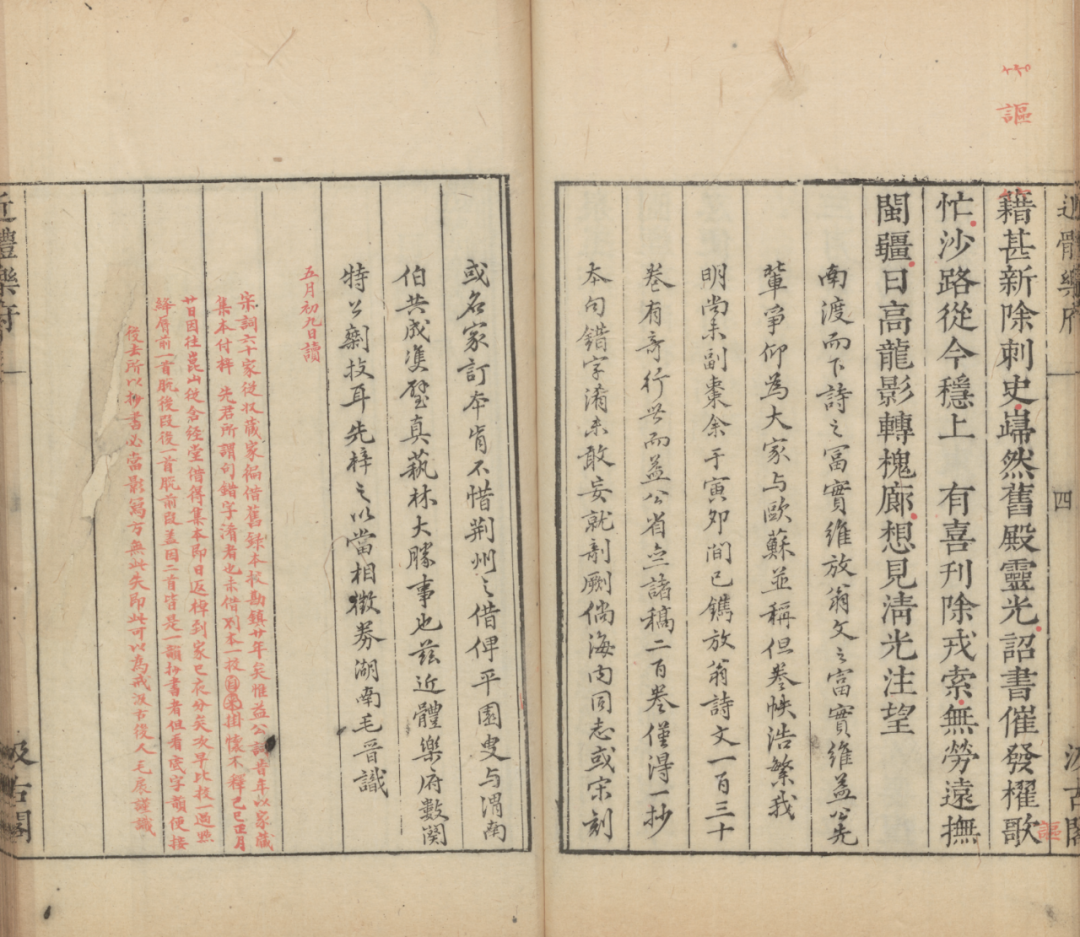 艹 謳
近體樂府 四 汲古閣
籍甚新除刺史巋然舊殿靈光詔書催發櫂歌
謳
忙沙路從今穩上 有喜刊除戎索無勞遠撫
閩疆日高龍影轉槐廊想見清光注望
南渡而下詩之富實維放翁文之富實維益公先
輩爭仰為大家與歐蘇並稱但卷帙浩繁我
明尚未副棗余于寅夘間已鐫放翁詩文一百三十
卷有奇行世而益公省齋諸稿二百卷僅得一抄
本句錯字淆未敢妄就剞劂倘海內同志或宋刻
或名家訂本肯不惜荆州之借俾平園叟與渭南
伯共成雙璧真蓺林大勝事也茲近體樂府數闋
特公劇技耳先梓之以當相徵券湖南毛晉識
五月初九日讀
宋詞六十家從收藏家徧借舊錄本挍勘鎮廿年矣惟益公詞昔年以家藏
集本付梓 先君所謂句錯字淆者也未借別本一挍掛懷不釋己巳正月
廿日因往崑山從含經堂借得集本即日返棹到家已夜分矣次早比挍一過
歸脣前一首脫後段後一首脫前段蓋因二首皆是一韻抄書者但看底字韻便接
後去所以抄書必當影寫方無此失即此可以為戒汲古後人毛扆謹識
近體樂府 汲古閣